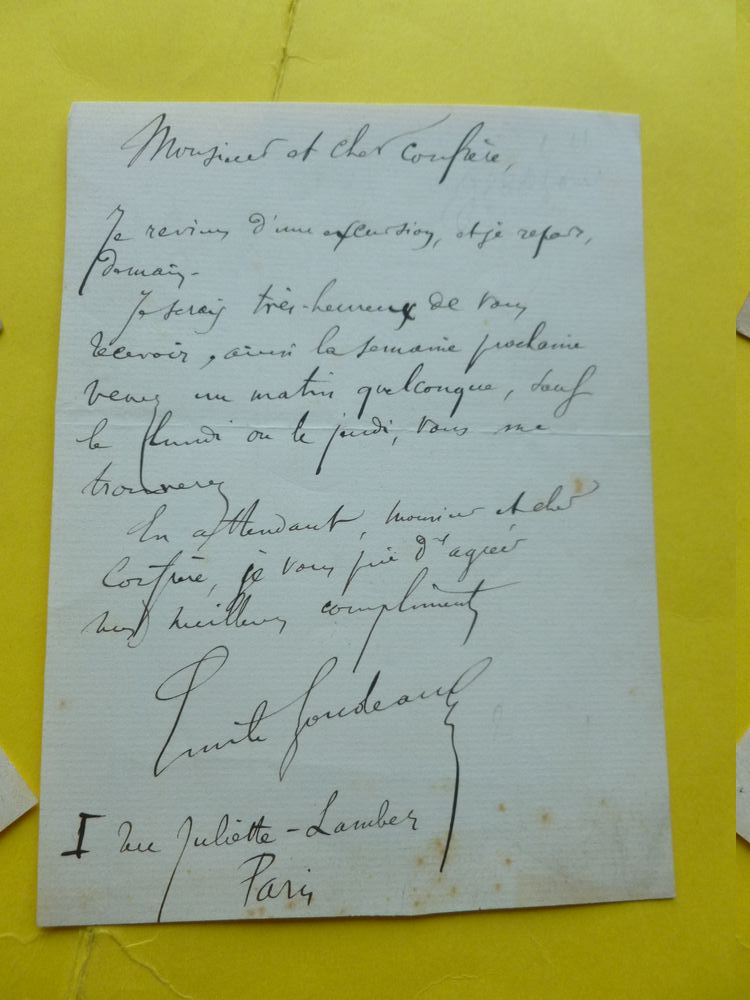 Monsieur et cher confrère,
Je reviens d'une excursion, et je repars,
demain.
Je serais très-heureux de vous
recevoir, ainsi la semaine prochaine
venez un matin quelconque, sauf
le lundi ou le jeudi, vous me
trouverez
En attendant, monsieur et cher
confrère, je vous prie d'agréer
mes meilleurs compliments
Emile Goudeau
1 rue Juliette-Lamber
Paris